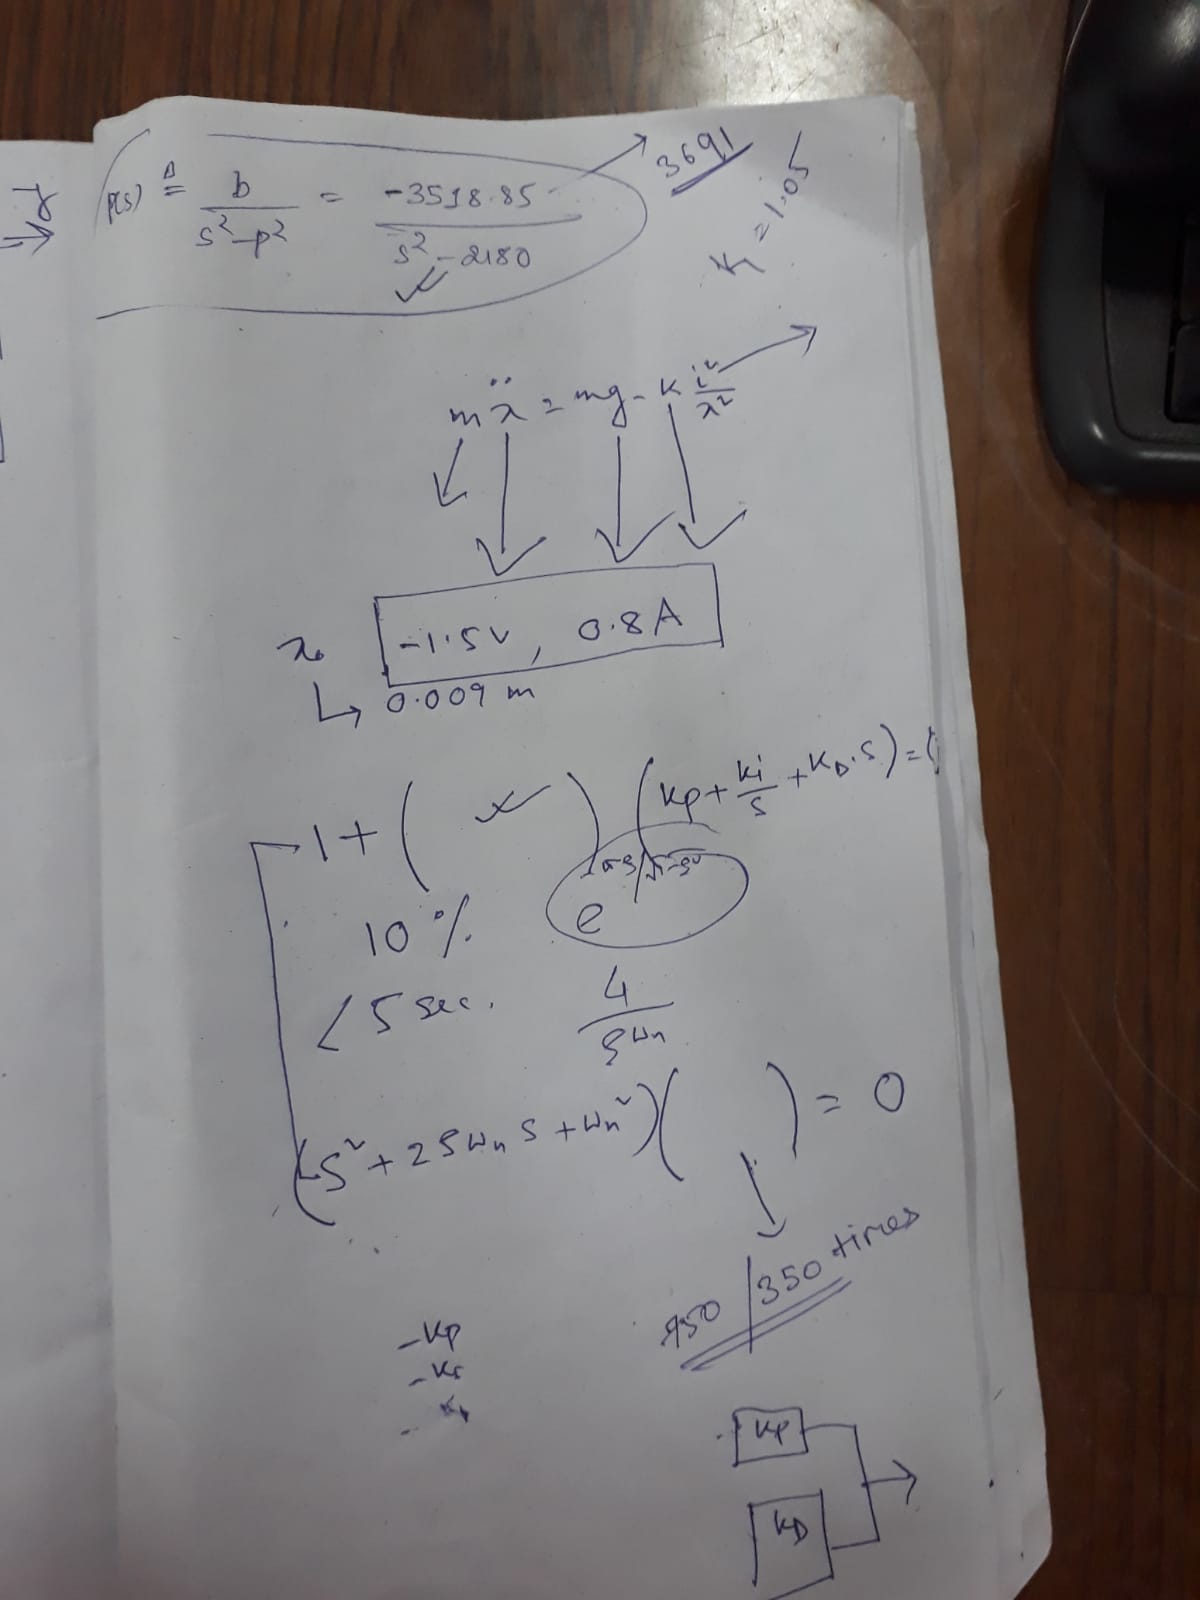 p(s) ≜ b / (s² - p²) = -3518.85 / (s² - 2180)
3691
K₁ = 1.05
mẍ = mg - K i²/x²
x₀ -1.5V, 0.8A
↳ 0.009 m
1 + ( ✓ ) (Kp + Ki/s + KD.S) = 0
10 % e
< 5 sec. 4 / ξωn
(s² + 2ξωn s + ωn²) ( ) = 0
350 times
- Kp
- Ki
Kp
KD